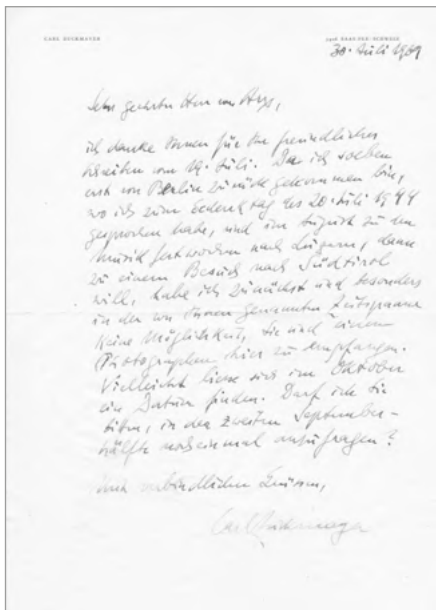 CARL ZUCKMAYER
3906 SAAS-FEE·SCHWEIZ
30. Juli 1969
Sehr geehrter Herr von
ich danke Ihnen für Ihr freundliches
Schreiben vom 19. Juli. Da ich soeben
erst von Berlin zurück gekommen bin,
wo ich zum Gedenktag des 20. Juli 1944
gesprochen habe, und im August zu den
Musikfestwochen nach Luzern, dann
zu einem Besuch nach Südtirol
will, habe ich zunächst und besonders
in der von Ihnen genannten Zeitspanne
keine Möglichkeit, Sie und einen
Photographen hier zu empfangen.
Vielleicht liesse sich im Oktober
ein Datum finden. Darf ich Sie
bitten, in der zweiten September-
hälfte noch einmal anzufragen?
Mit verbindlichen Grüssen,
Carl Zuckmayer